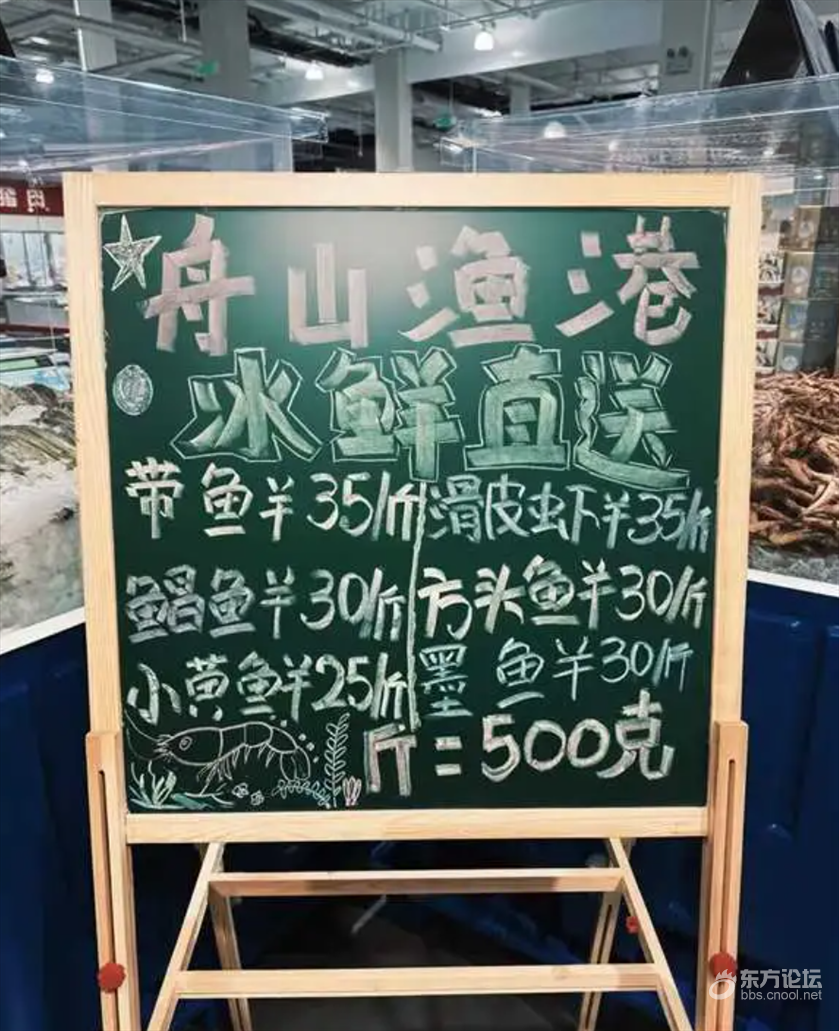 舟山渔港
冰鲜直送
带鱼羊35/斤
滑皮虫下羊35/斤
鲳鱼羊30/斤
方头鱼羊30/斤
小黄鱼羊25/斤
墨鱼羊30/斤
斤=500克
东方论坛
bbs.cnool.net